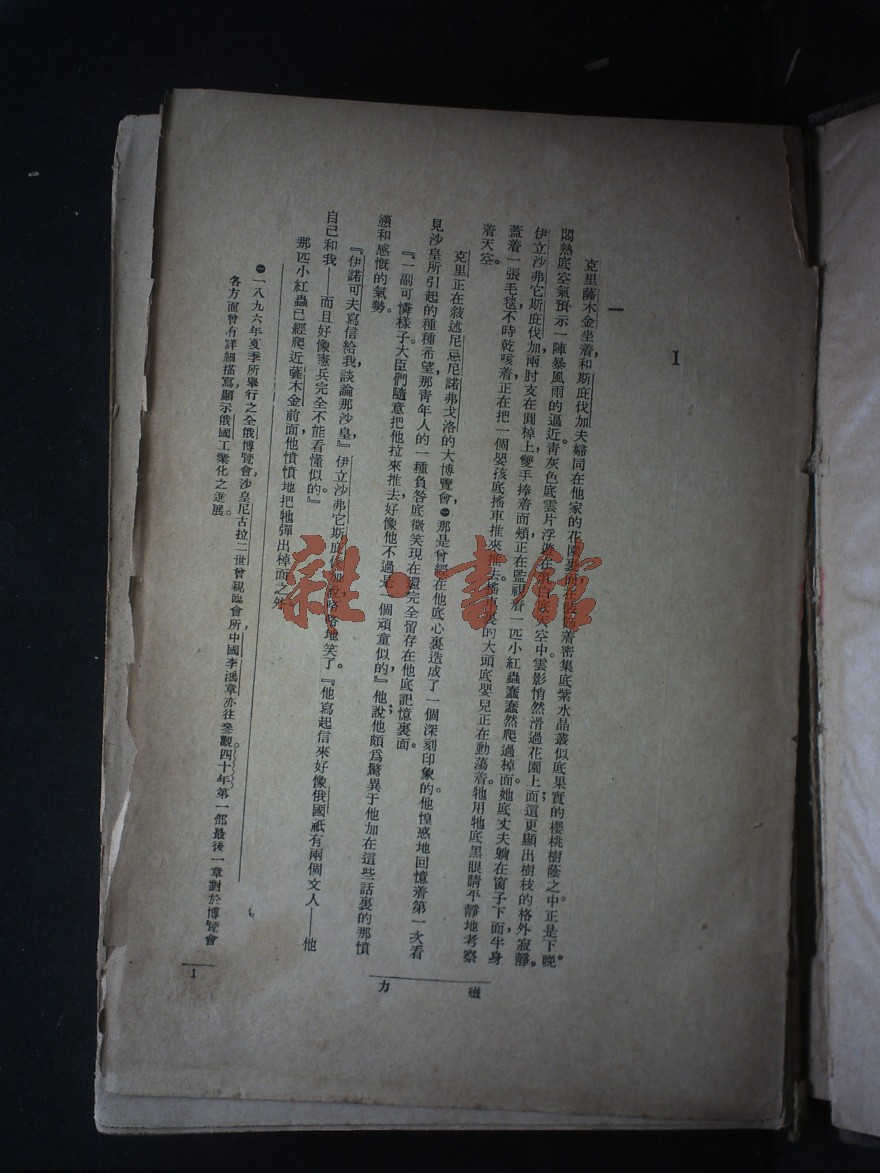 I
一
克里薩木金坐着，和斯庇伐加夫婦同在他家的花園裏面
着密集底紫水晶叢似底果實的櫻桃樹蔭之中正是下晚。
悶熱底空氣預示一陣暴風雨的逼近青灰色底雲片浮遊在
底天空中雲影悄然滑過花園上面；這更顯出樹枝的格外寂靜。
伊立沙弗它斯庇伐加兩肘支在圓棹上，雙手捧着面頰正在監視着一匹小紅蟲蠢蠢然爬過棹面。她底丈夫躺在窗子下面半身
蓋着一張毛毯，不時乾咳着正在把一個嬰孩底搖車推來推去。搖車裏的大頭底嬰兒正在動蕩着牠用牠底黑眼睛平靜地考察
着天空。
克里正在敍述尼忌尼諾弗戈洛的大博覽會，㊀那是曾經在他底心裏造成了一個深刻印象的他惶惑地回憶着第一次看
見沙皇所引起的種種希望，那青年人的一種負咎底微笑現在還完全留存在他底記憶裏面。
『一副可憐樣子。大臣們隨意把他拉來推去好像他不過是一個頑童似的，』他說；他頗爲驚異于他加在這些話裏的那憤
懣和感慨的氣勢。
『伊諾可夫寫信給我，談論那沙皇，』伊立沙弗它斯庇伐加說，咯咯地笑了。『他寫起信來好像俄國祇有兩個文人——他
自己和我——而且好像憲兵完全不能看懂似的。』
那匹小紅蟲已經爬近薩木金前面，他憤憤地把牠彈出棹面之外
㊀一八九六年夏季所舉行之全俄博覽會，沙皇尼古拉二世曾親臨會所，中國李鴻章亦往參觀。四十年第一部最後一章對於博覽會
各方面曾有詳細描寫，顯示俄國工業化之進展。
磁力
1
雜·書館